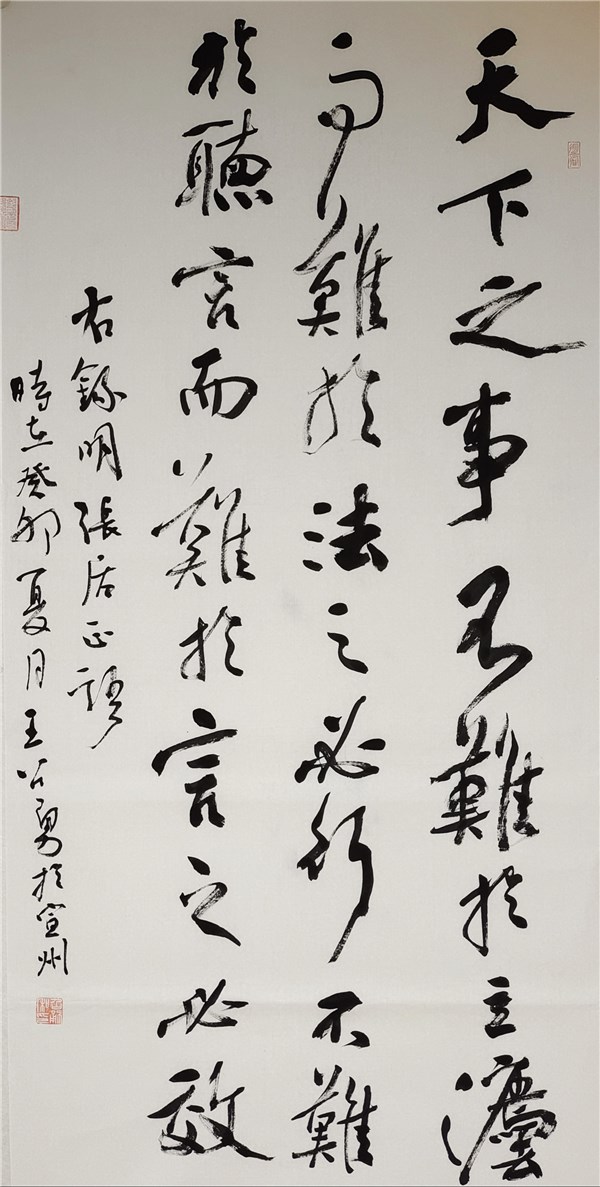 天下之事不難於立灋
而難於法之必行不難
於聽言而難於言之必效
右録明張居正語
時在癸卯夏月王公勇於宣州